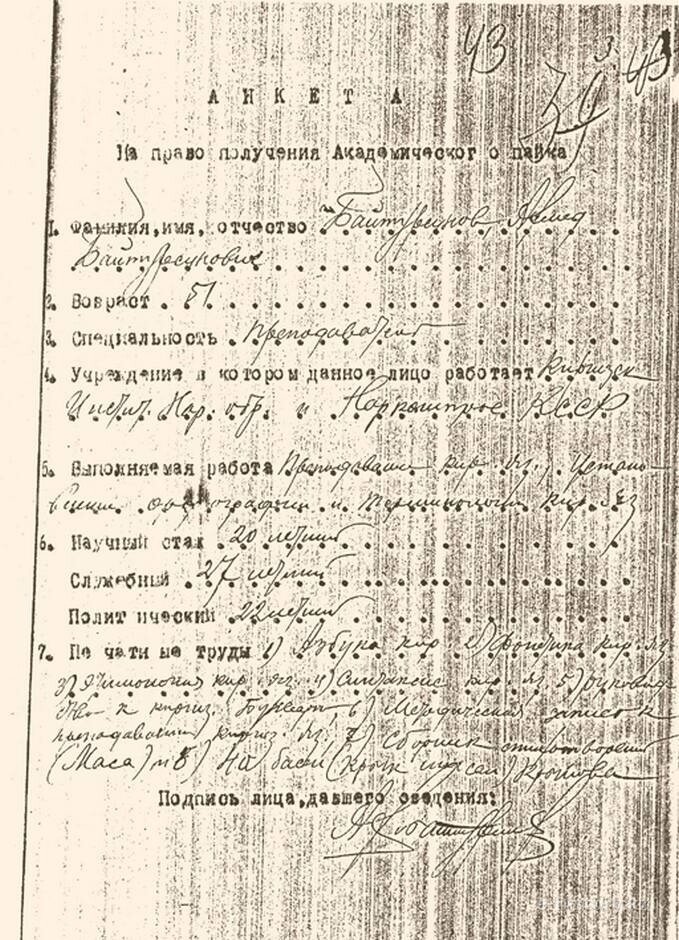 43
3.
43
39
АНКЕТА
На право получения Академического пайка
1. Фамилия, имя, отчество Байтурсунов, Ахмед
Байтурсунович
2. Возраст 51
3. Специальность Преподаватель
4. Учреждение в котором данное лицо работает Киргизск
Инстит. Нар. обр. и Наркомпрос КССР
5. Выполняемая работа Преподавание кир. яз., Устано-
вление орфографии и терминологии кир. яз
6. Научный стаж 20 летний
Служебный 27 летний
Политический 22 летний
7. Печатные труды 1) Азбука кир 2) Фонетика кир. яз
3) Этимология кир. яз. 4) Синтаксис кир. яз 5) Руковод-
ство к киргиз. Букварю 6) Методическая записка
преподавании киргиз. яз. 7) Сборник стихотворений
(Маса) и 8) 40 басен (Крык мысал) Крылова
Подпись лица, давшего сведения: